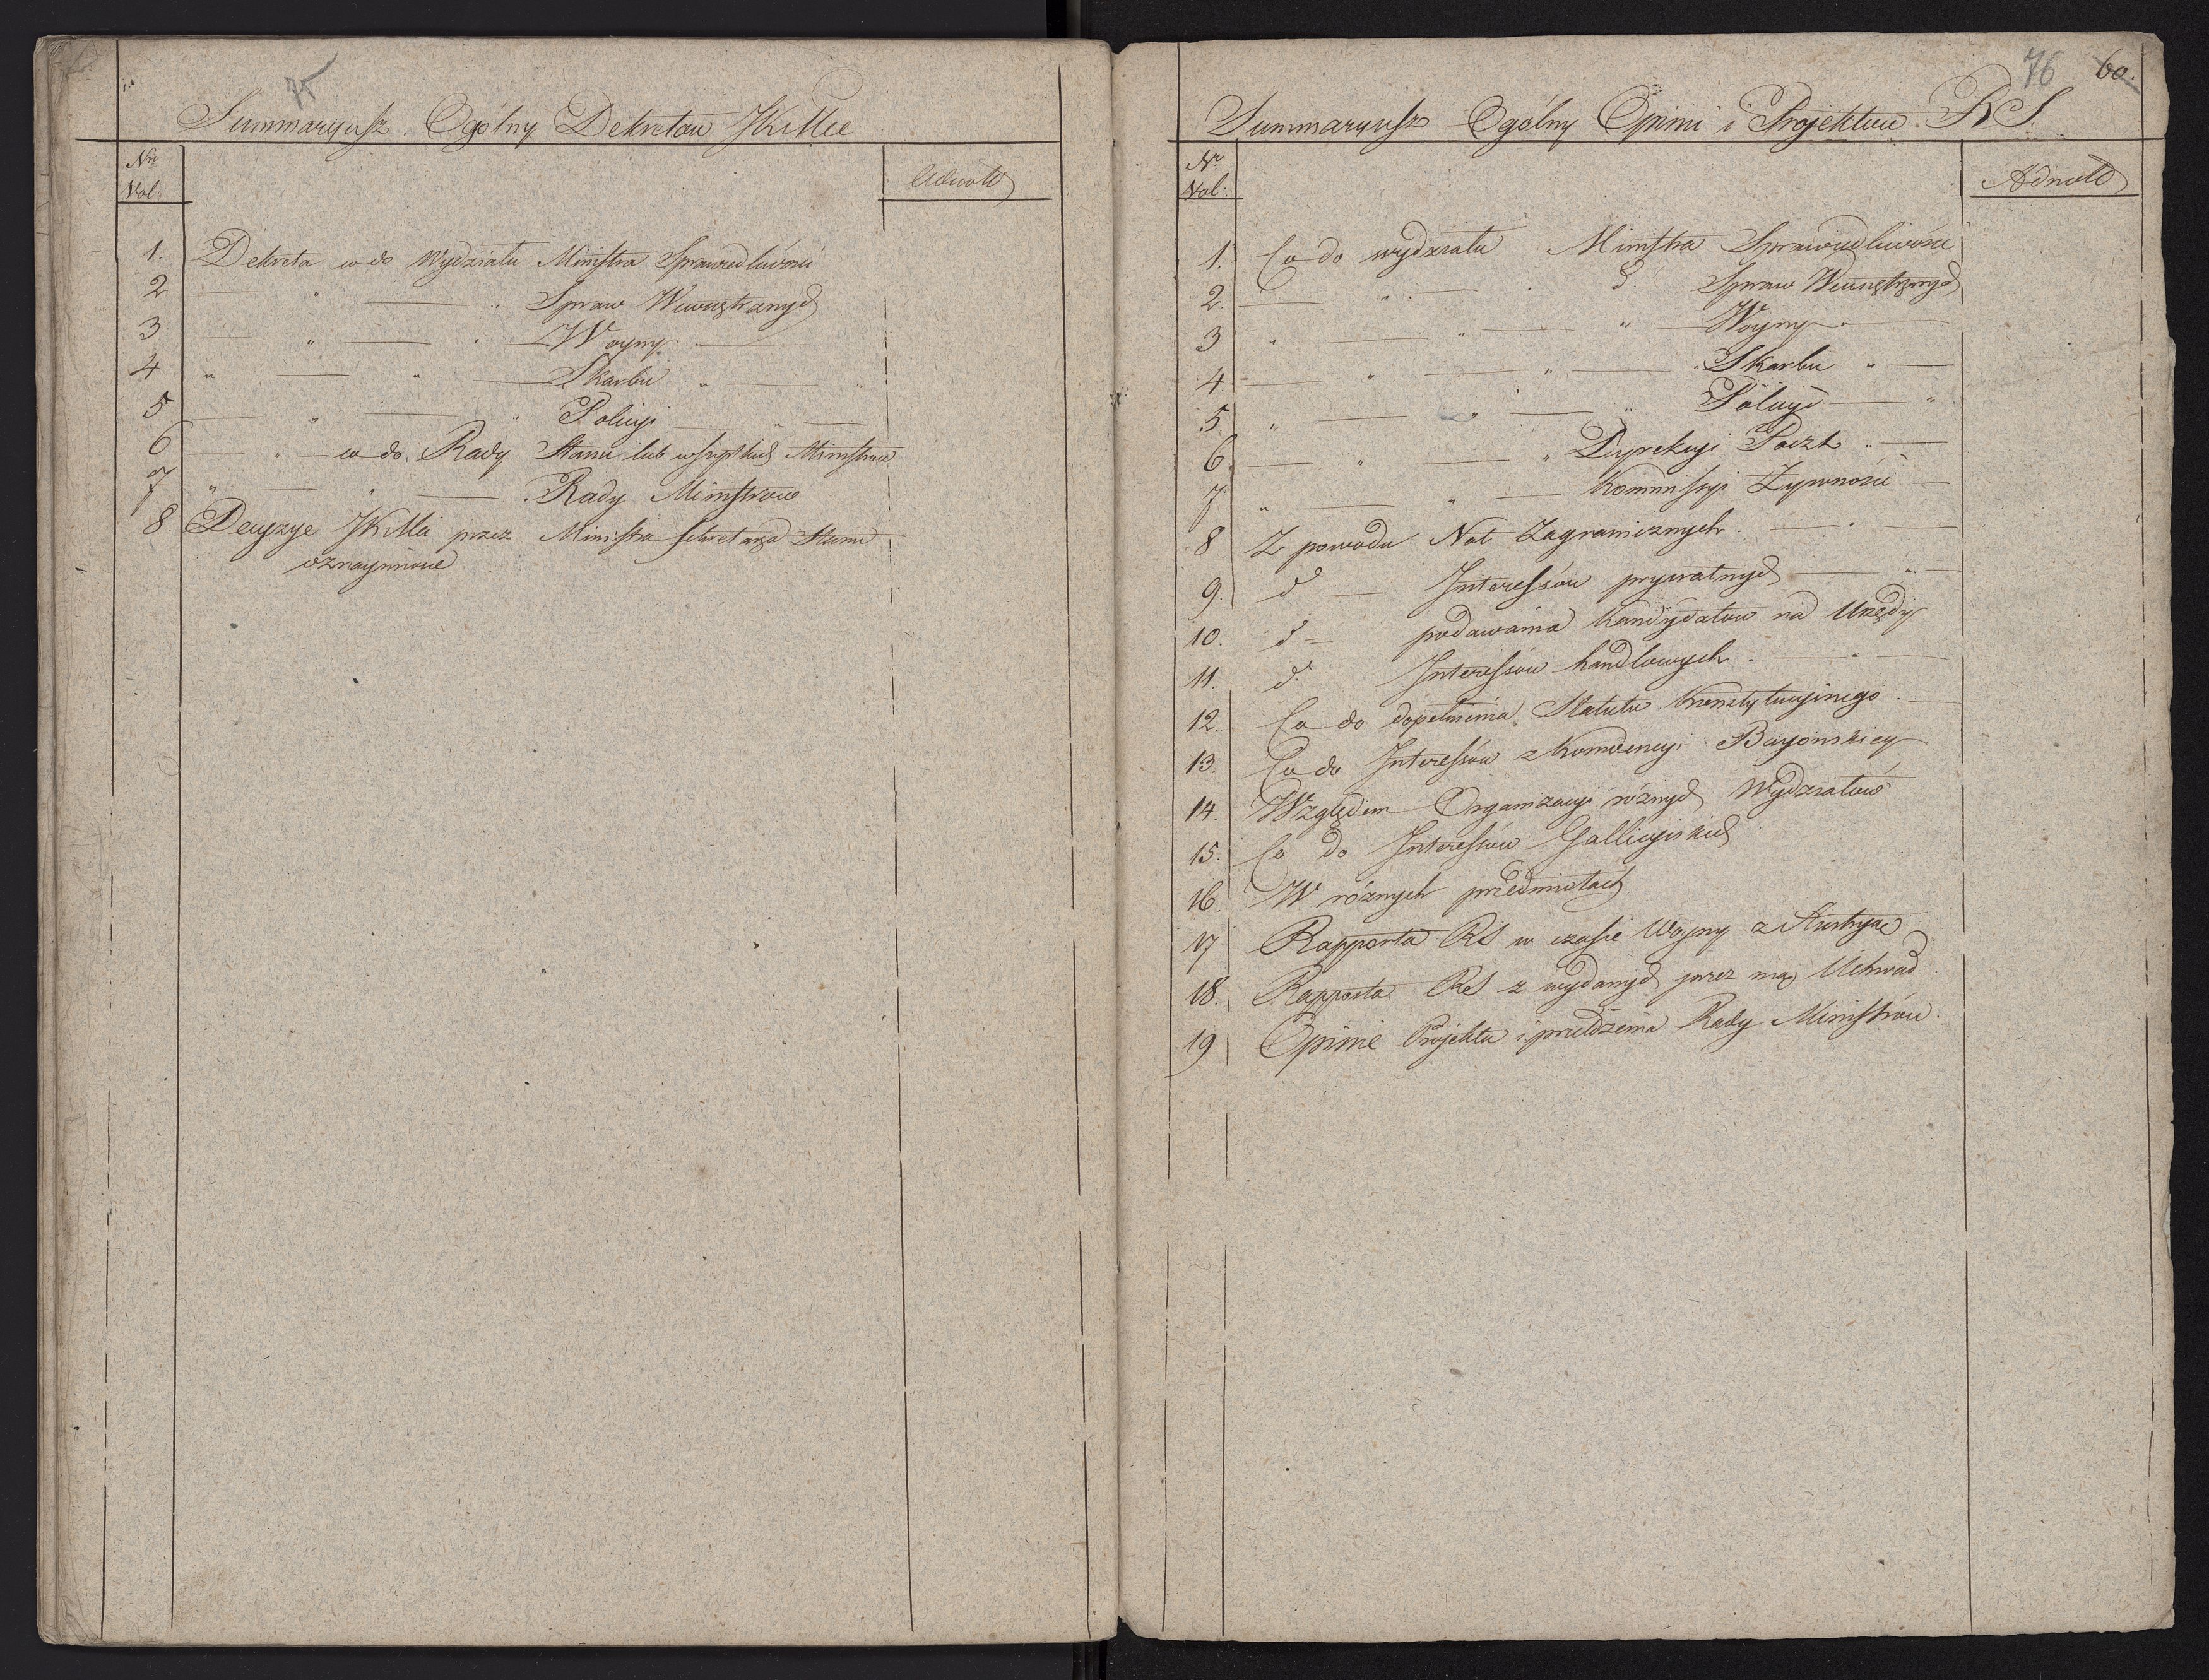 75
Summaryusz Ogólny Dekretów JKMci
Nro Vol: Adnott
1. Dekreta co do Wydziału Ministra Sprawiedliwości
2 — " — " Spraw Wewnętrznych
3 — " — " — Woyny —
4 " — " — Skarbu " —
5 — " — " Policyi — " —
6 — " — co do Rady Stanu lub wszystkich Ministrów
7 " — " — Rady Ministrów
8 Decyzye JKMci przez Ministra Sekretarza Stanu
oznaymione
76 60.
Summaryusz Ogólny Opinii i Projektów R S.
Nr Vol: Adnott
1. Co do wydziału Ministra Sprawiedliwości
2. — " — " d. Spraw Wewnętrznych
3 " — " — " — Woyny —
4. — " — " — Skarbu " —
5. " — " — " Policyi — "
6. — " — " Dyrekcyi Poczt " —
7 " — " — Kommissyi Żywności —
8 Z powodu Not Zagranicznych — " —
9. do — Interessów prywatnych — " —
10. do — podawania Kandydatów na Urzędy
11. do Interessów handlowych — " —
12. Co do dopełnienia Statutu Konstytucyinego —
13. Co do Interessów z Konwencyi Bayońskiey
14. Względem Organizacyi różnych Wydziałów
15. Co do Interessów Gallicyiskich
16. W różnych przedmiotach
17 Rapporta RS w czasie Woyny z Austryą
18. Rapporta RS z wydanych przez nią Uchwał
19 Opinie Projekta i Rady Ministrów.